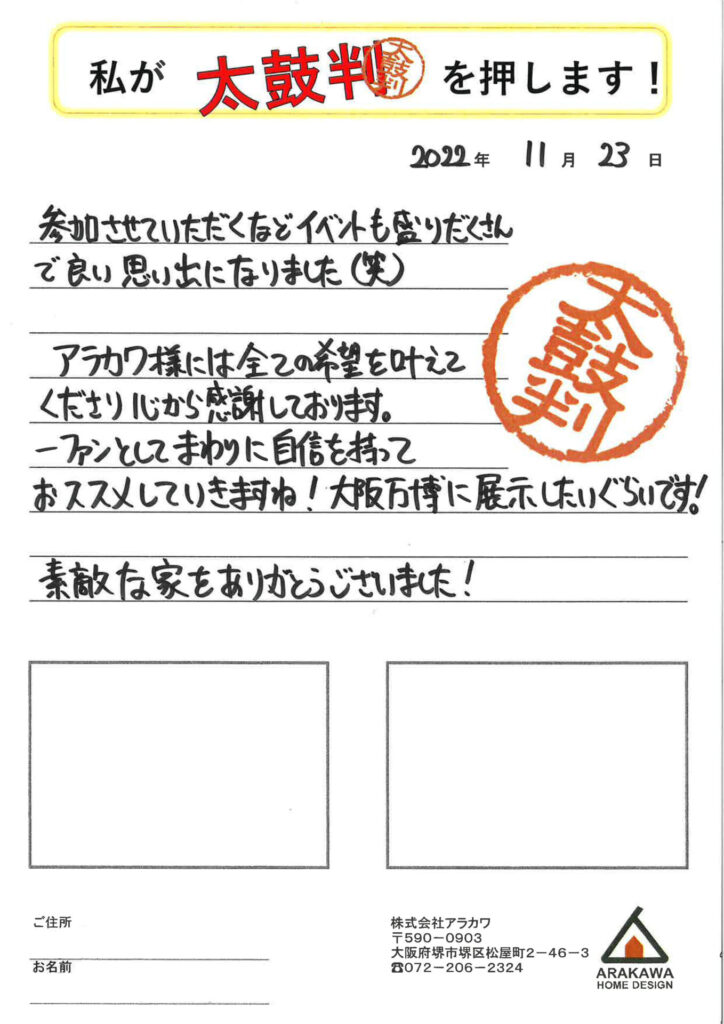 私が 太鼓判 太鼓判 を押します！
2022年 11月 23日
参加させていただくなどイベントも盛りだくさん
で良い思い出になりました（笑）
太鼓判
アラカワ様には全ての希望を叶えて
くださり心から感謝しております。
一ファンとしてまわりに自信を持って
おススメしていきますね！大阪万博に展示したいぐらいです！
素敵な家をありがとうございました！
ご住所
お名前
株式会社アラカワ
〒590－0903
大阪府堺市堺区松屋町2－46－3
☎072－206－2324
ARAKAWA
HOME DESIGN